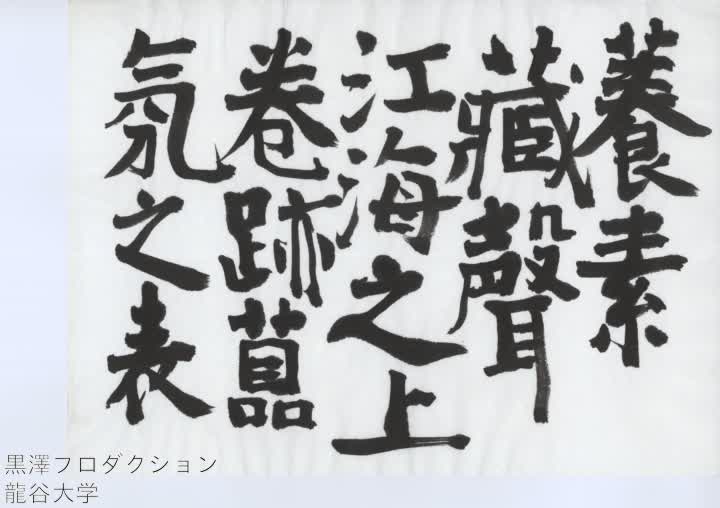 養素
藏聲
江海之上
卷跡囂
氛之表
黒澤フロダクション
龍谷大学